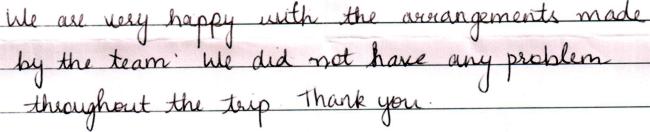 We are very happy with the arrangements made
by the team. We did not have any problem
throughout the trip. Thank you.